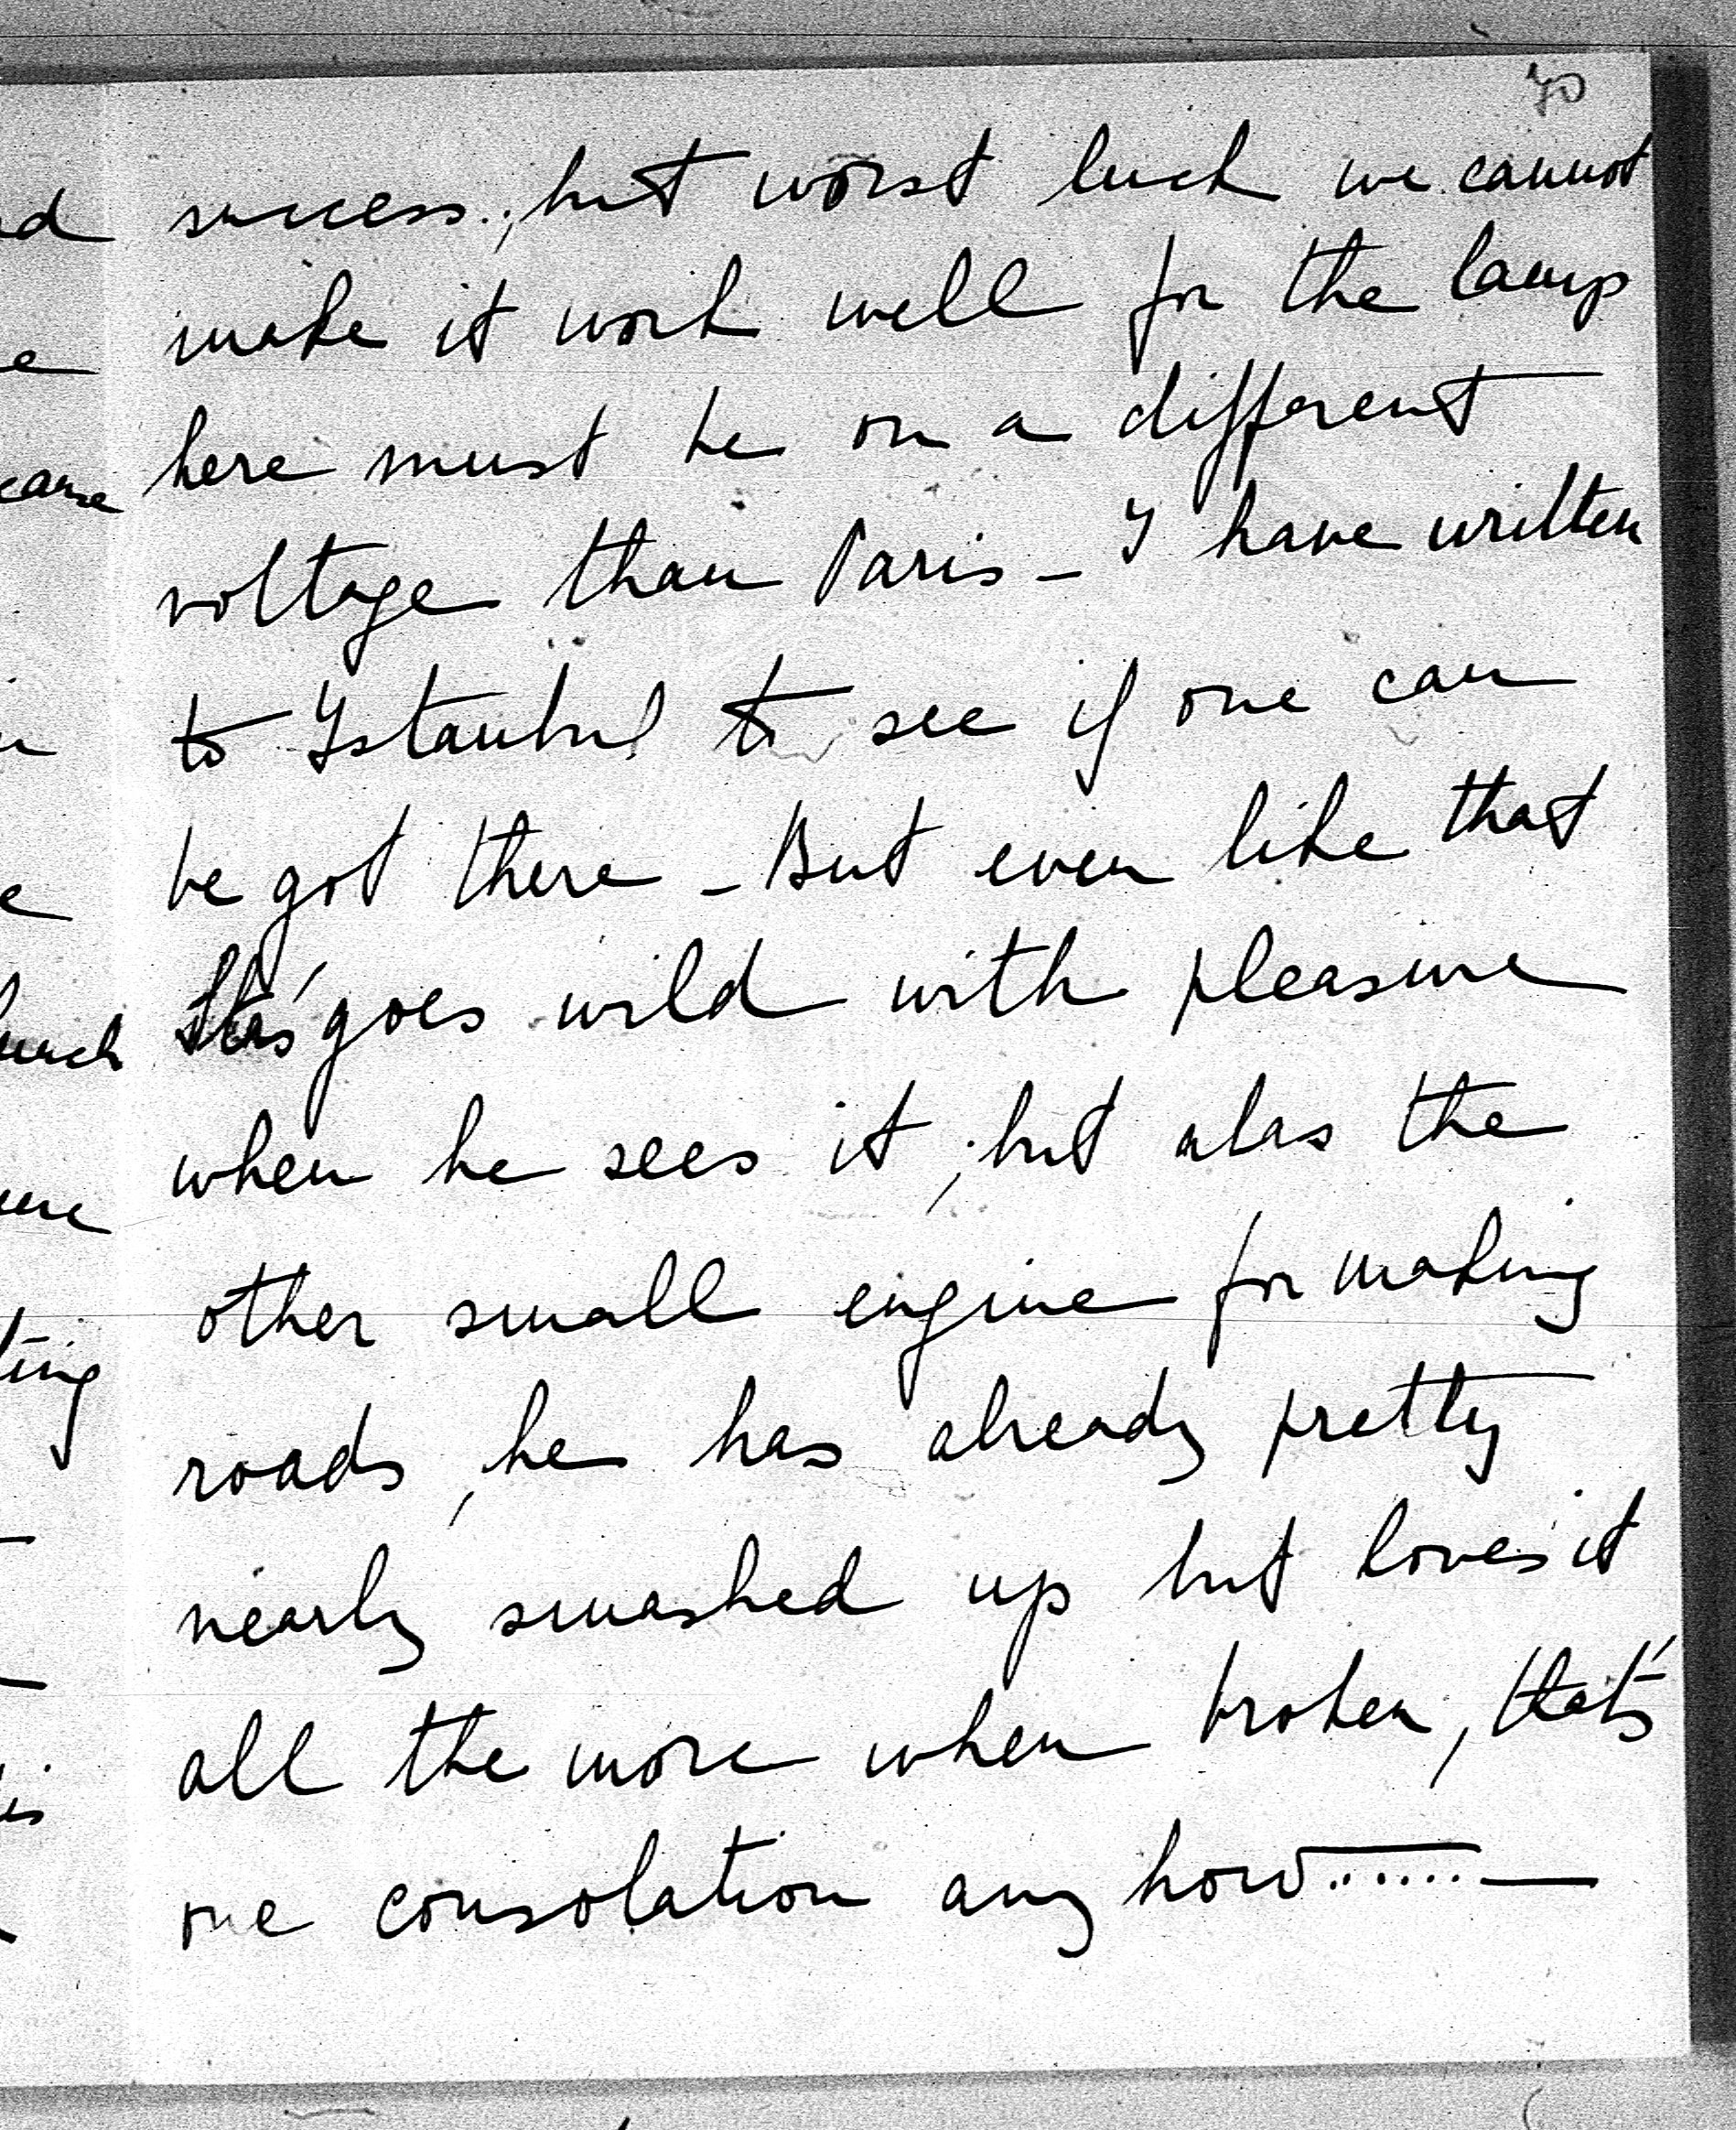 70
success, but worst luck we cannot
make it work well for the lamp
here must be on a different
voltage than Paris - I have written
to Istanbul to see if one can
be got there - But even like that
Stas' goes wild with pleasure
when he sees it, but alas the
other small engine for making
roads, he has already pretty
nearly smashed up but loves it
all the more when broken, that's
one consolation any how...... -